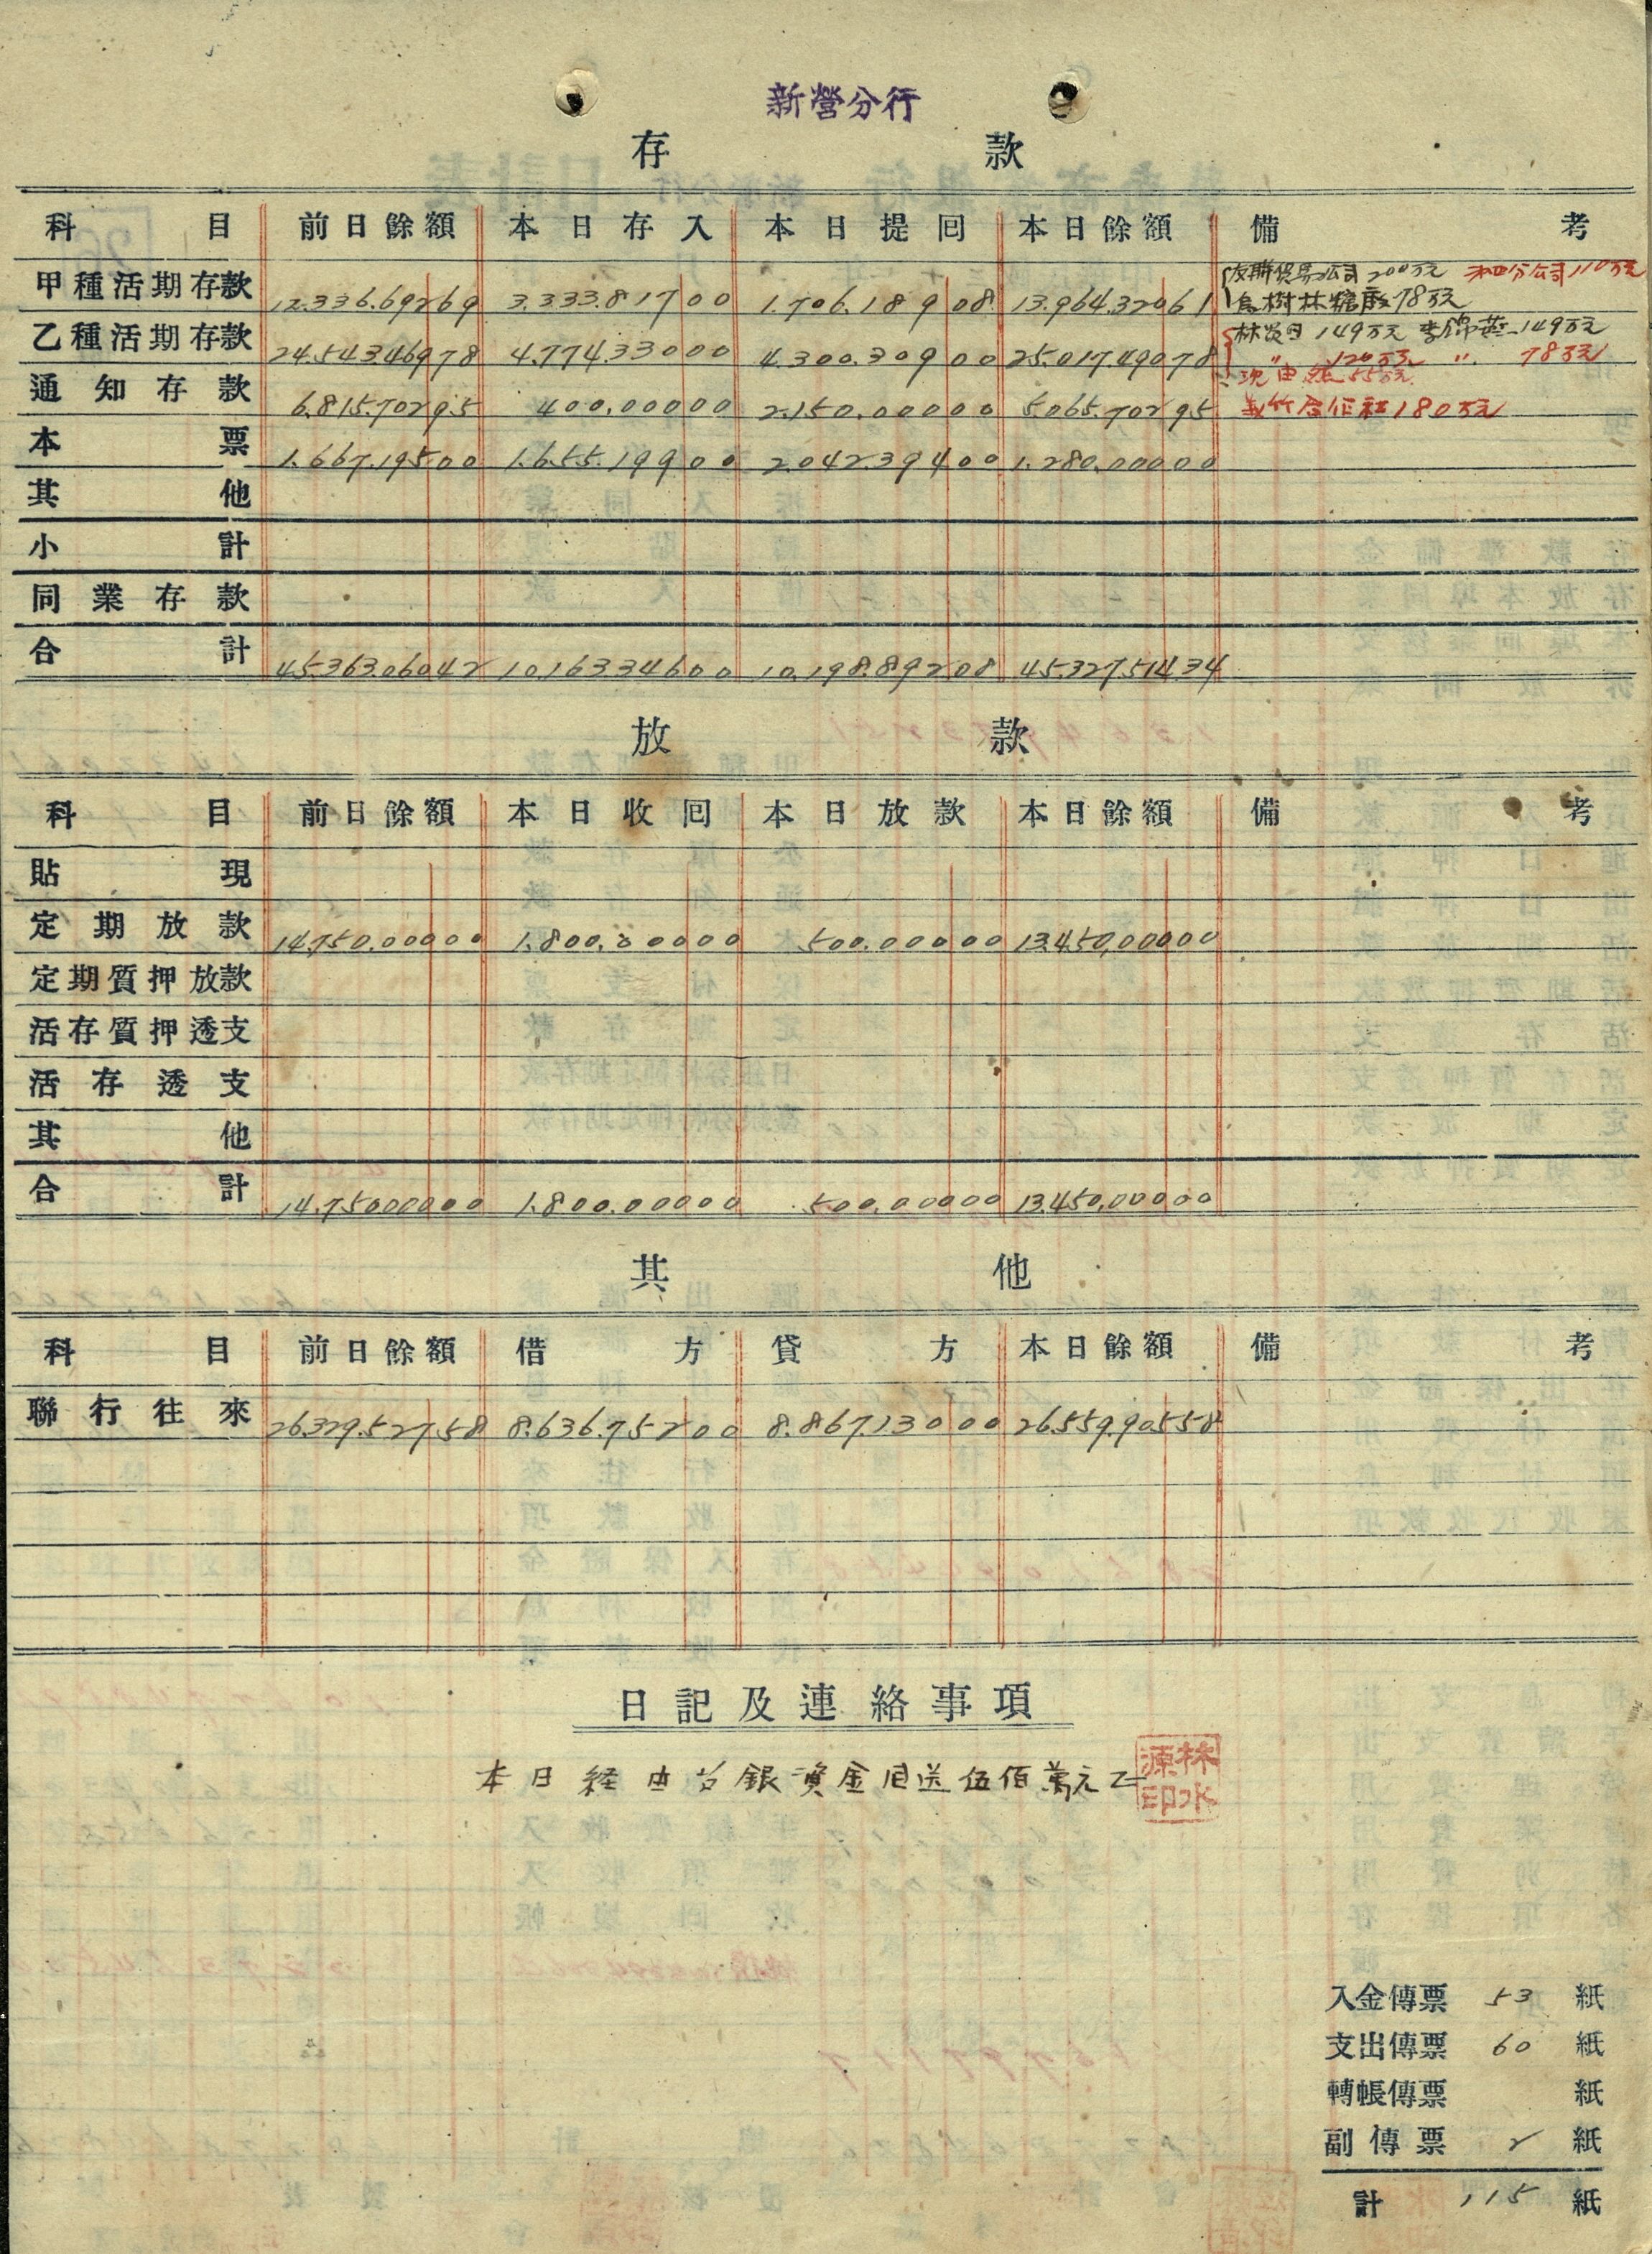 新營分行
存 款
科目 前日餘額 本日存入 本日提囘 本日餘額 備考
甲種活期存款 12.336.692 69 3.333.817 00 1.706.189 08 13.964.320 61 友聯貿易公司 200万元
烏樹林糖廠 78万元
乙種活期存款 24.543.469 78 4.774.330 00 4.300.309 00 25.017.490 78 149万元 149万元
〃 120万元 〃 78万元
通知存款 6.815.702 95 400.000 00 2.150.000 00 5.065.702 95 55万元
180万元
本票 1.667.195 00 1.655.199 00 2.042.394 00 1.280.000 00
其他
小計
同業存款
合計 45.363.060 42 10.163.346 00 10.198.892 08 45.327.514 34
放 款
科目 前日餘額 本日收囘 本日放款 本日餘額 備考
貼現
定期放款 14.750.000 00 1.800.000 00 500.000 00 13.450.000 00
定期質押放款
活存質押透支
活存透支
其他
合計 14.750.000 00 1.800.000 00 500.000 00 13.450.000 00
其 他
科目 前日餘額 借方 貸方 本日餘額 備考
聯行往來 26.329.527 58 8.636.752 00 8.867.130 00 26.559.905 58
日記及連絡事項
本日経由台銀資金囘送伍佰萬元正
林水源印
入金傳票 53 紙
支出傳票 60 紙
轉帳傳票 紙
副傳票 2 紙
計 115 紙